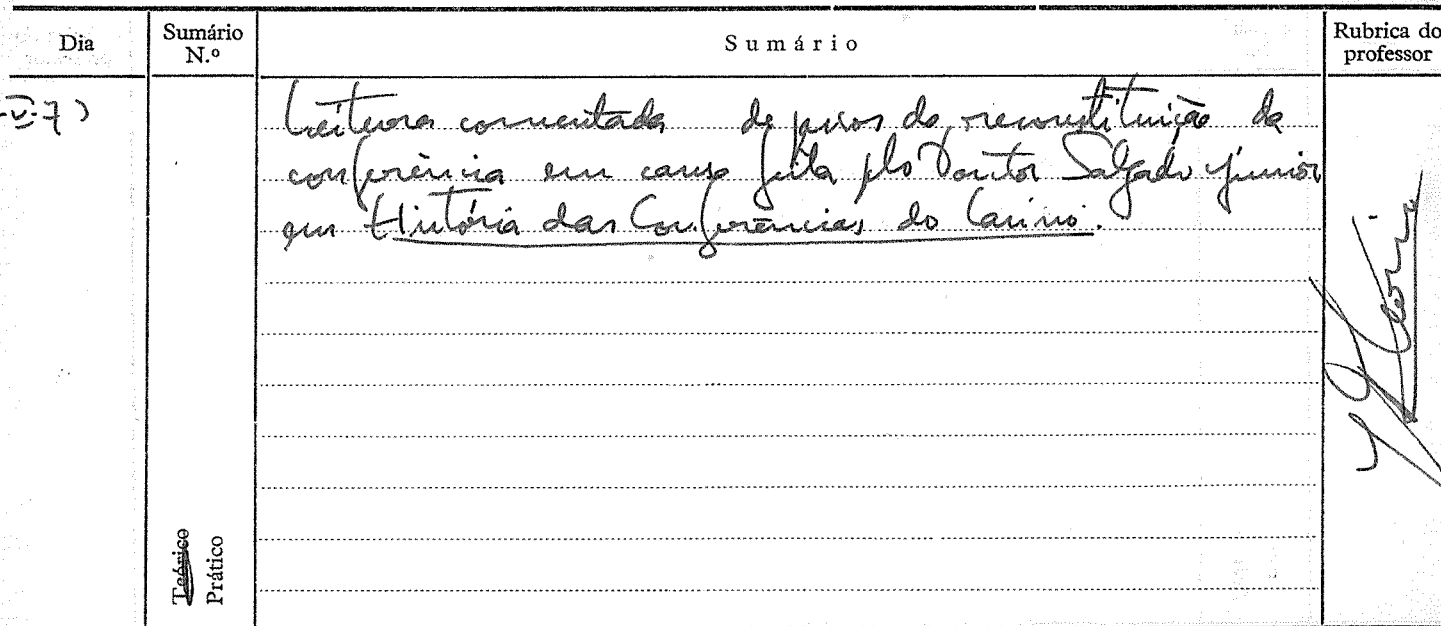 Dia
Sumário N.º
Sumário
Rubrica do professor
Leitura comentada de passos da reconstituição da
conferência em causa feita plo Doutor Salgado Júnior
em História das Conferências do Casino.
Teórico
Prático